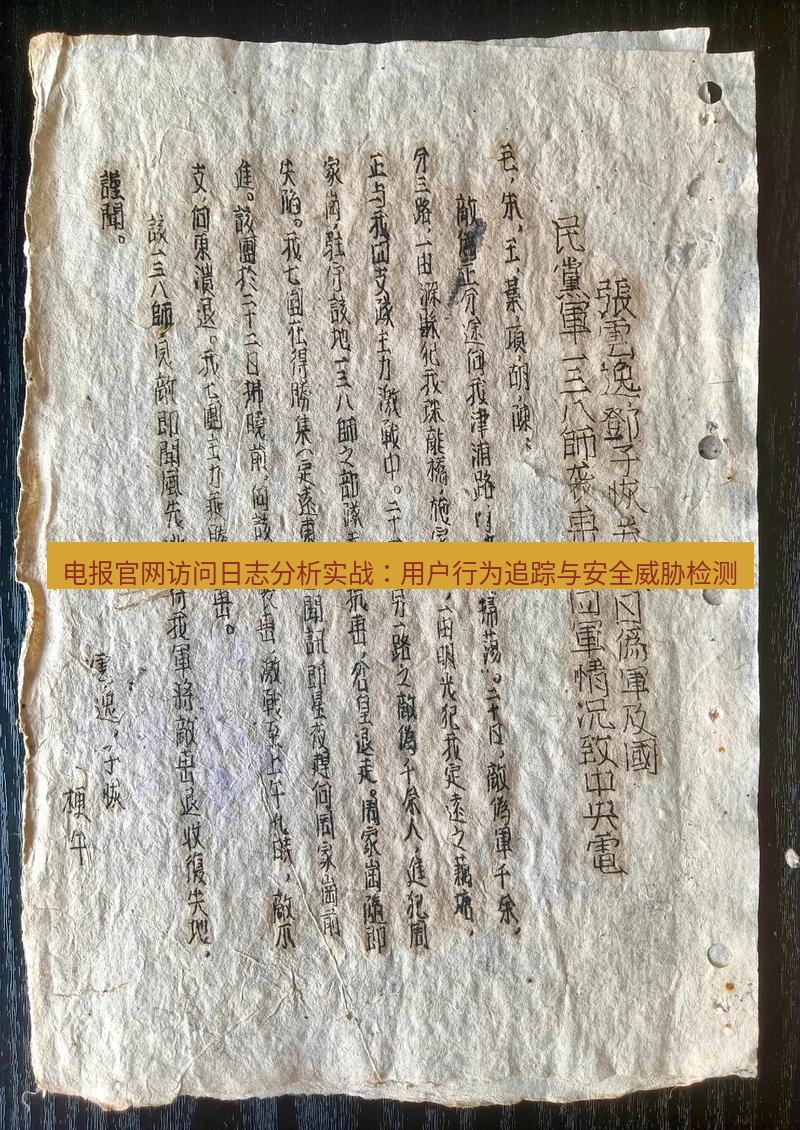 張雲逸、鄧子恢关 日偽軍及國
民黨軍一三八師袭击 团軍情况致中央電
毛，朱，王，葉，項，胡，陳：
敵 正分途向我津浦路 掃荡。二十日，敵偽軍千余，
分三路，一由滁縣犯我珠龍橋，施家 ，一由明光犯我定遠之藕塘，
正与我四支敌主力激战中。二十 另一路之敵偽千余人，進犯周
家崗，駐守該地一三八師之部隊 抗击，倉皇退走。周家崗隨即
失陷。我七團在得勝集（定遠東 聞訊即星夜趕向周家崗前
進。該團於二十二日拂曉前，向該 袭击，激战至上午九時，敵不
支，向東潰退。我七團主力乘勝 击。
該一三八師，見敵即聞風先逃 何我軍将敵击退收復失地，
謹聞。
雲逸，子恢
梗午
电报官网访问日志分析实战：用户行为追踪与安全威胁检测